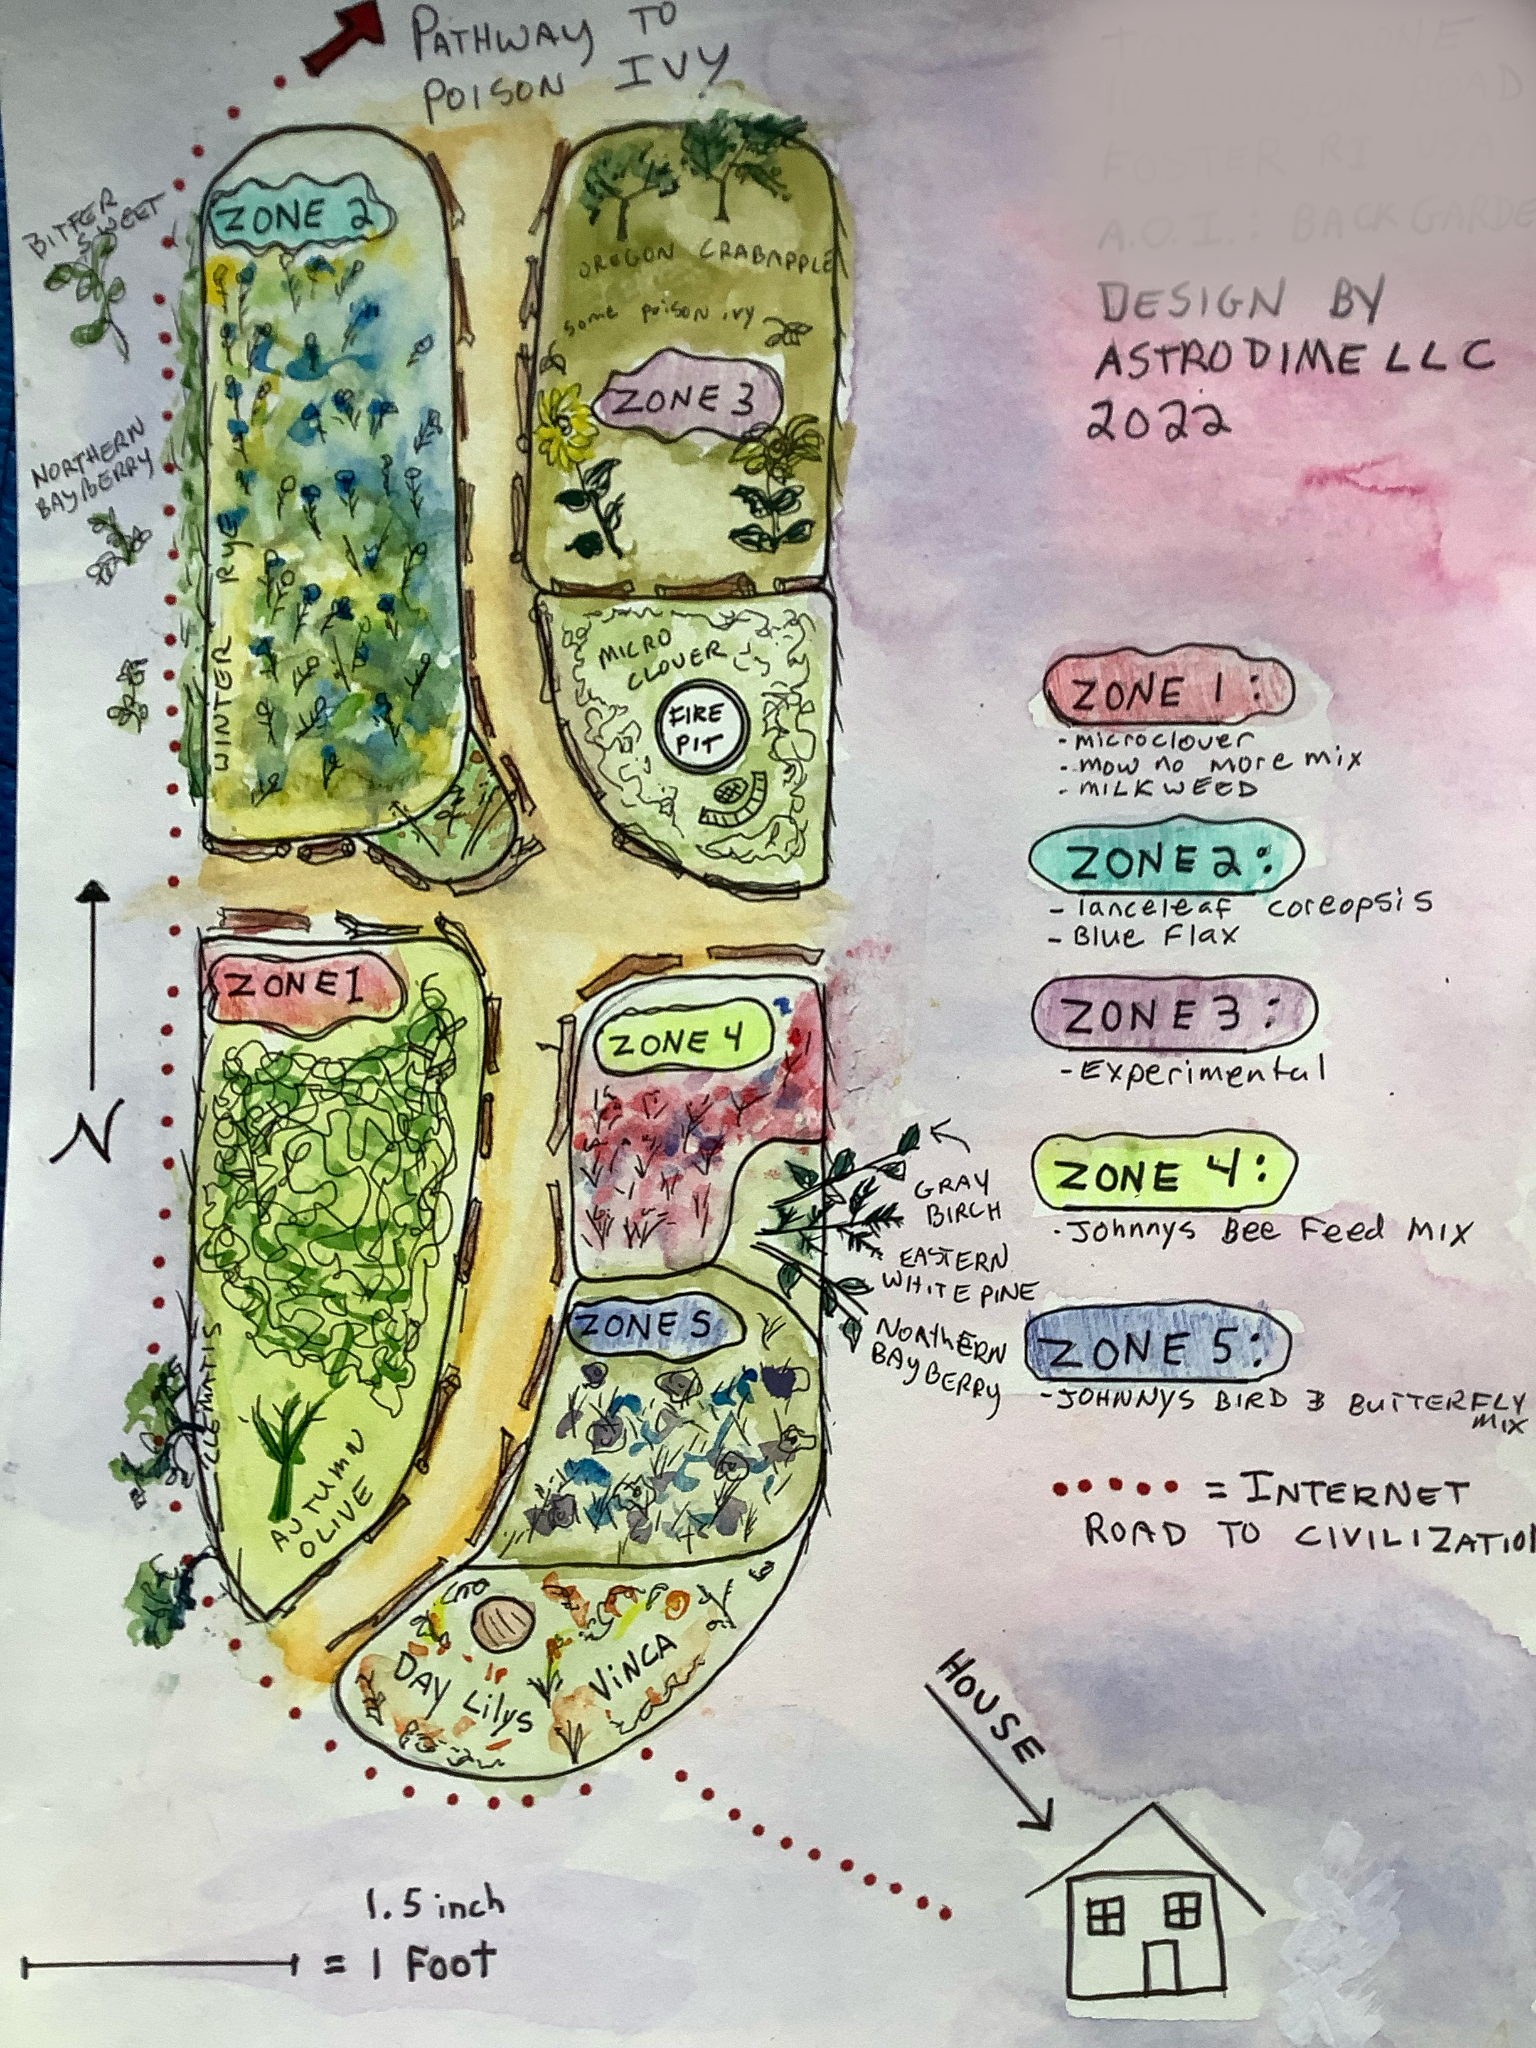 PATHWAY TO
POISON IVY
FOSTER RI USA
A.O.I.: BACK GARDE
DESIGN BY
ASTRODIME LLC
2022
BITTER
SWEET
ZONE 2
OREGON CRABAPPLE
some poison ivy
ZONE 3
NORTHERN
BAYBERRY
WINTER RYE
MICRO
CLOVER
FIRE
PIT
ZONE 1:
- microclover
- mow no more mix
- MILKWEED
ZONE 2:
- lanceleaf coreopsis
- Blue Flax
ZONE 3:
- Experimental
ZONE 4:
- Johnnys Bee Feed Mix
ZONE 5:
- JOHNNYS BIRD & BUTTERFLY
MIX
= INTERNET
ROAD TO CIVILIZATION
N
ZONE 1
ZONE 4
GRAY
BIRCH
EASTERN
WHITE PINE
NORTHERN
BAYBERRY
ZONE 5
CLEMATIS
AUTUMN
OLIVE
DAY Lilys
VINCA
HOUSE
1.5 inch
= 1 FOOT